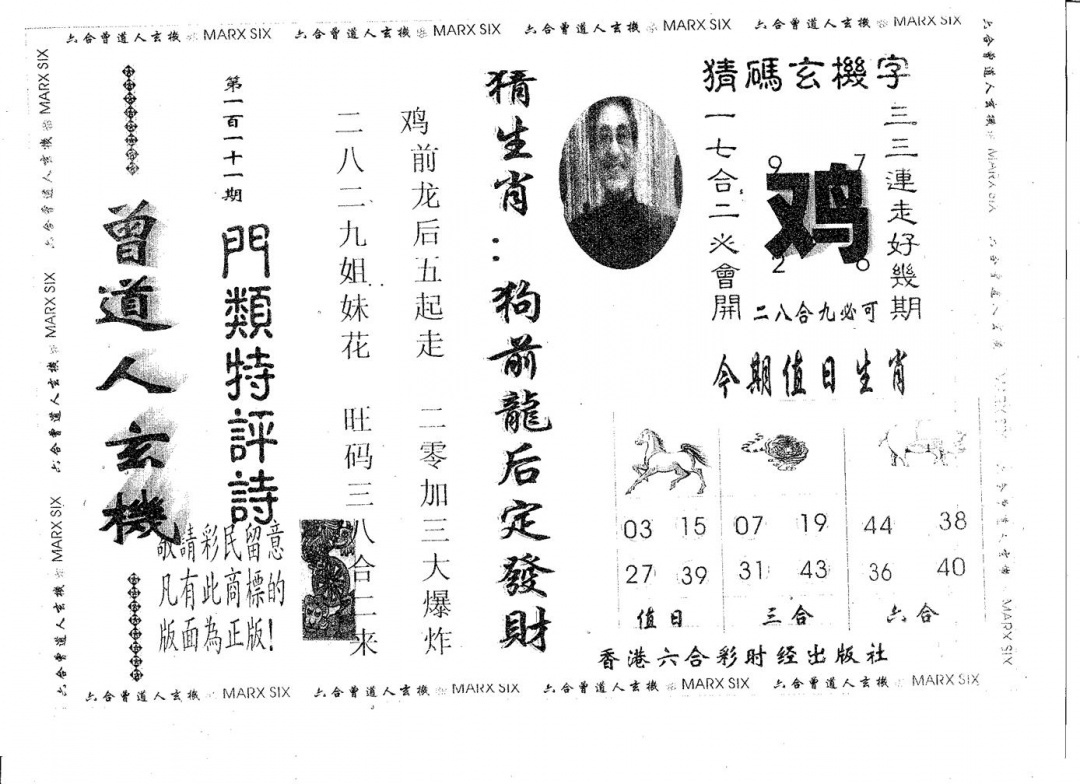 六合曾道人玄機 MARX SIX 六合曾道人玄機 MARX SIX 六合曾道人玄機 MARX SIX 六合曾道人玄機 MARX SIX
猜碼玄機字
三三連走好幾期
9 7
鸡
2 6
一七合二必會開
二八合九必可
今期值日生肖
03 15 07 19 44 38
27 39 31 43 36 40
值日 三合 六合
香港六合彩时经出版社
猜生肖：狗前龍后定發財
鸡前龙后五起走 二零加三大爆炸
二八二九姐妹花 旺码三八合二来
第一百一十一期
門類特評詩
曾道人玄機
敬請彩民留意
凡有此商標的
版面為正版!
六合曾道人玄機 MARX SIX 六合曾道人玄機 MARX SIX 六合曾道人玄機 MARX SIX
六合曾道人玄機 MARX SIX
MARX SIX
六合曾道人玄機 MARX SIX 六合曾道人玄機 MARX SIX 六合曾道人玄機 MARX SIX 六合曾道人玄機 MARX SIX